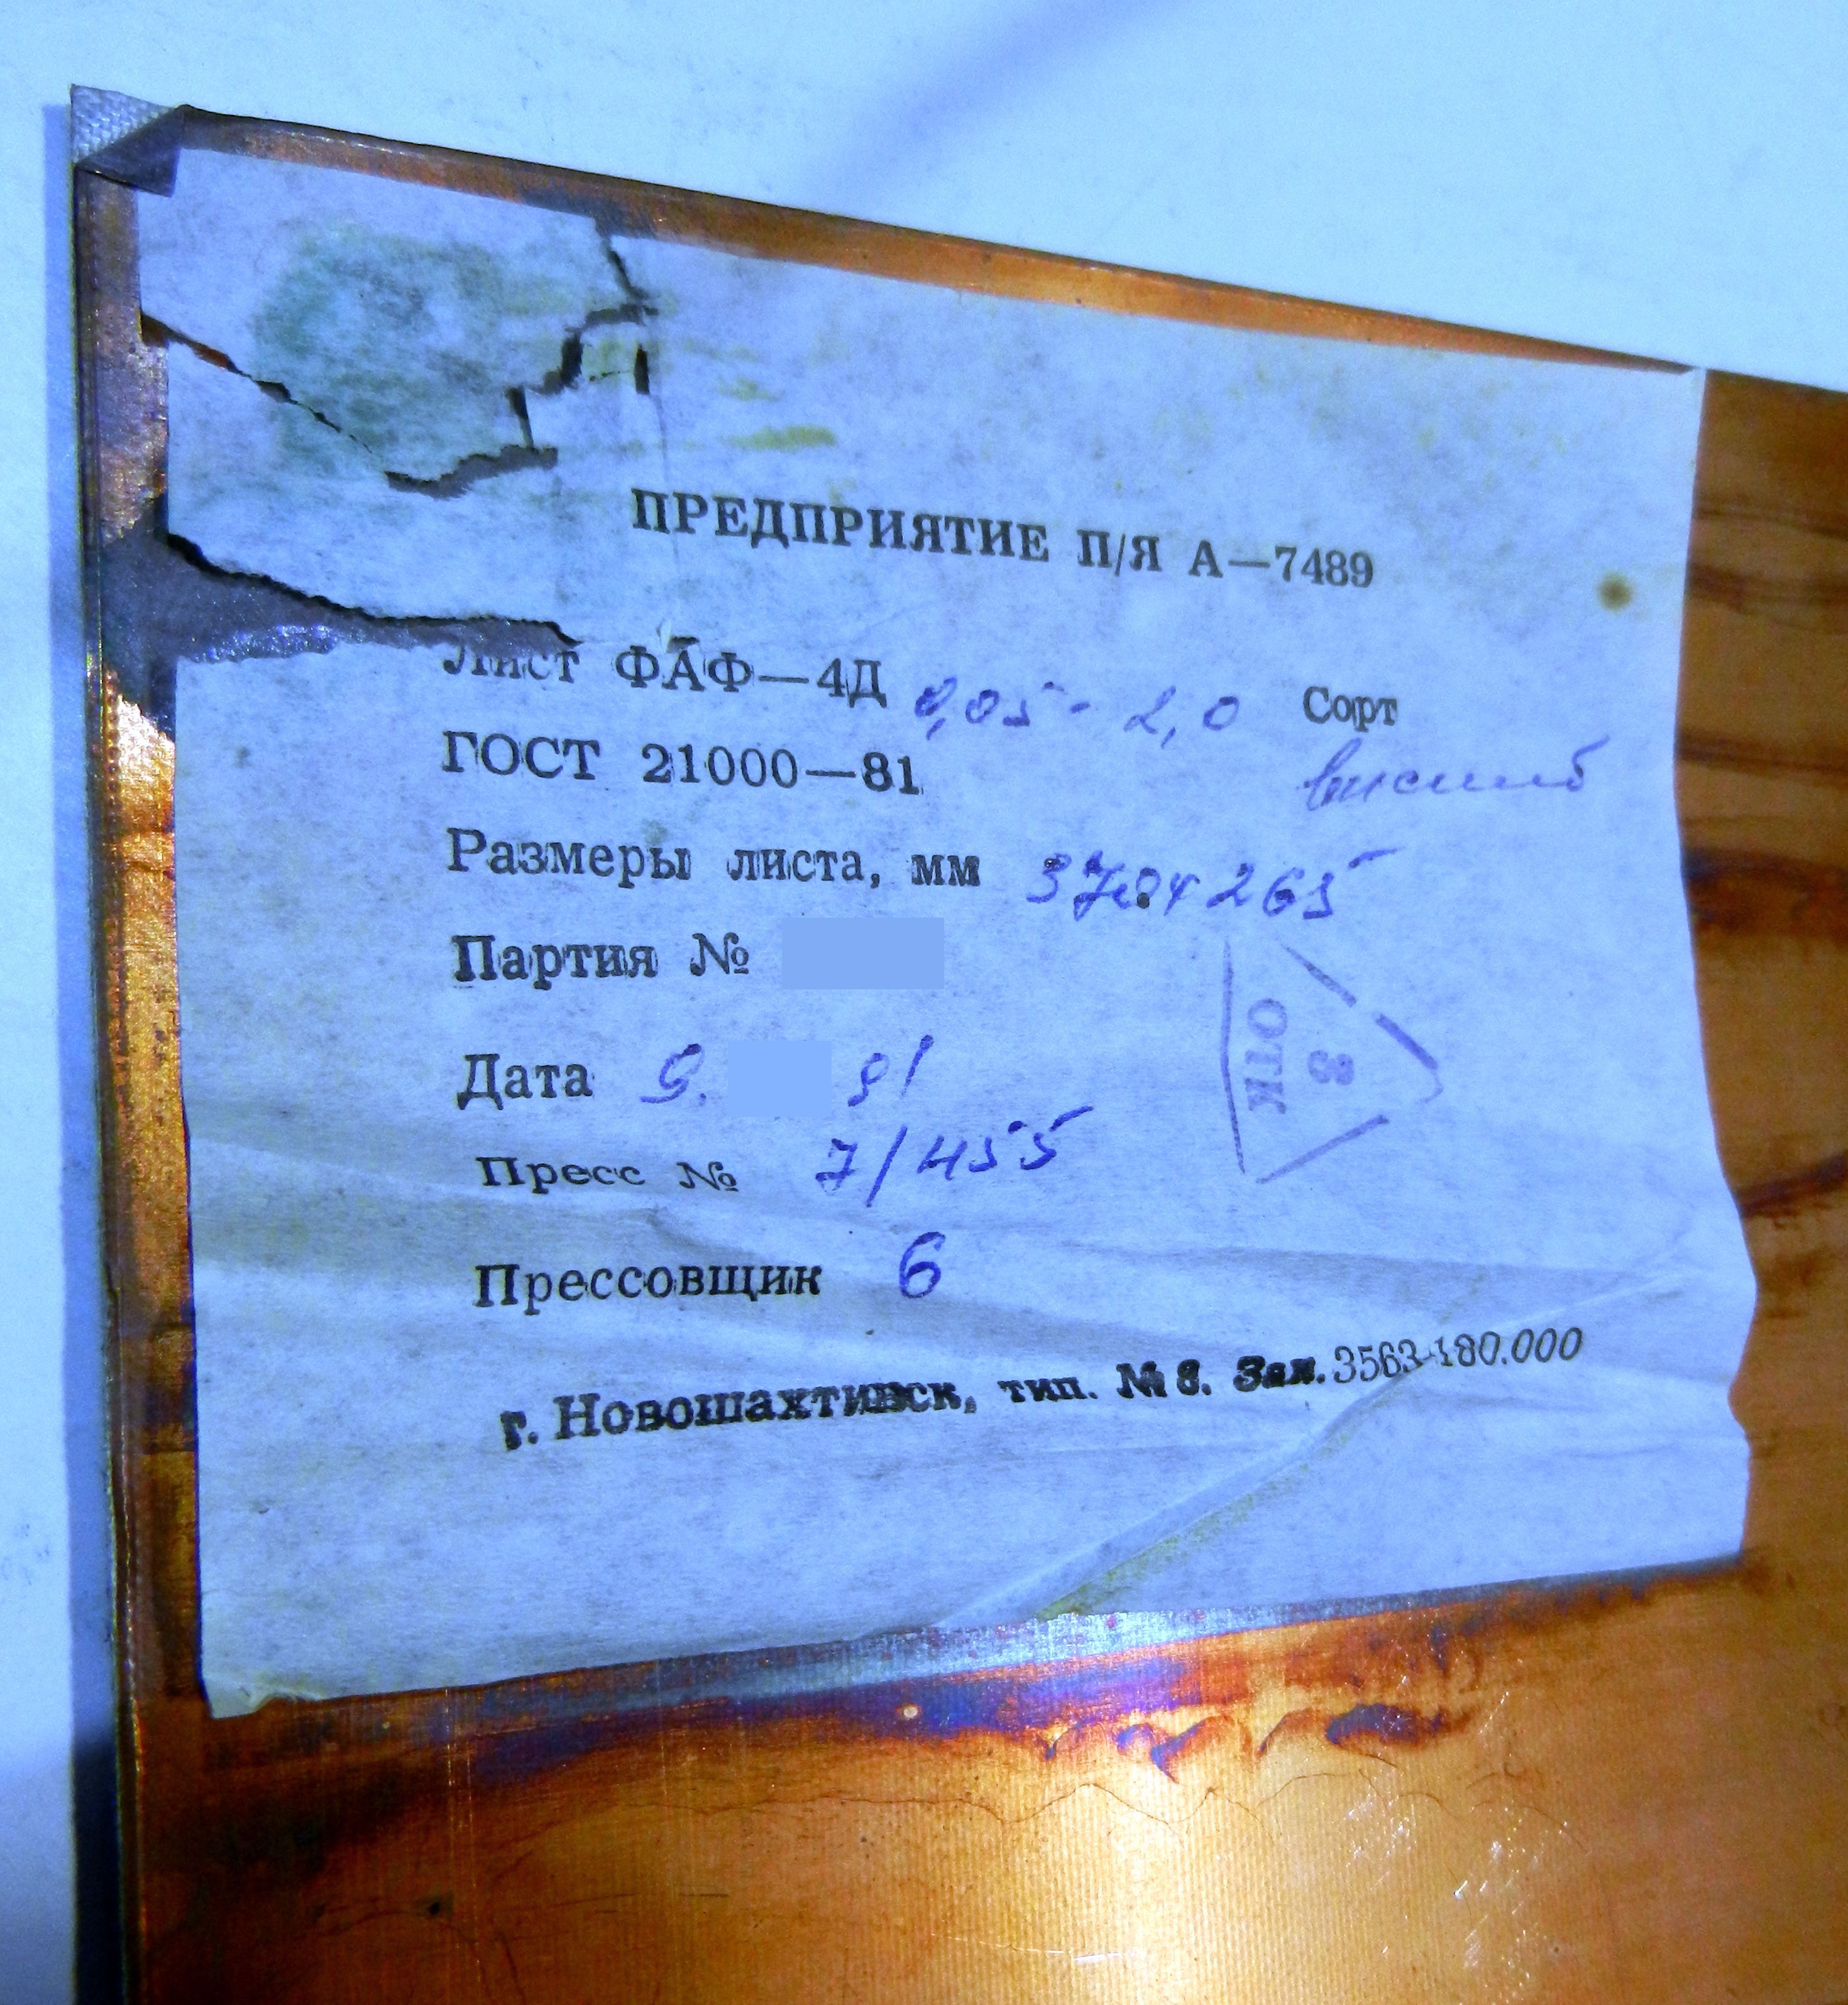 ПРЕДПРИЯТИЕ П/Я А—7489
Лист ФАФ—4Д 0,05 - 2,0 Сорт
ГОСТ 21000—81 высший
Размеры листа, мм 265
Партия №
Дата 9. 91
Пресс № 7/455
ОТК
3
Прессовщик 6
г. Новошахтинск, тип. № 8. Зак. 3563-180.000